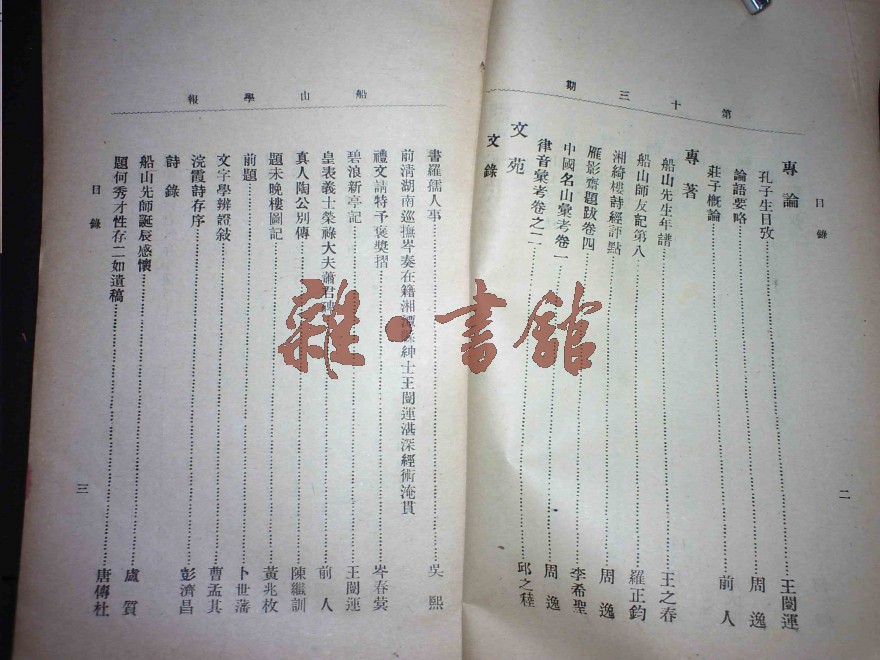 第十三期
目錄
二
專論
孔子生日攷 王闓運
論語要略 周逸
莊子概論 前人
專著
船山先生年譜 王之春
船山師友記第八 羅正鈞
湘綺樓詩經評點 周逸
雁影齋題跋卷四 李希聖
中國名山彙考卷一 周逸
律音彙考卷之二 邱之稑
文苑
文錄
船山學報
書羅孺人事 吳熙
前清湖南巡撫岑奏在籍湘潭縣紳士王闓運湛深經術淹貫
禮文請特予褒獎摺 岑春蓂
碧浪新亭記 王闓運
皇表義士榮祿大夫蕭君碑 前人
真人陶公別傳 陳繼訓
題未晚樓圖記 黃兆枚
前題 卜世藩
文字學辨證敍 曹孟其
浣霞詩存序 彭濟昌
詩錄
船山先師誕辰感懷 盧贊
題何秀才性存二如遺稿 唐傳杜
目錄
三
雜·書館